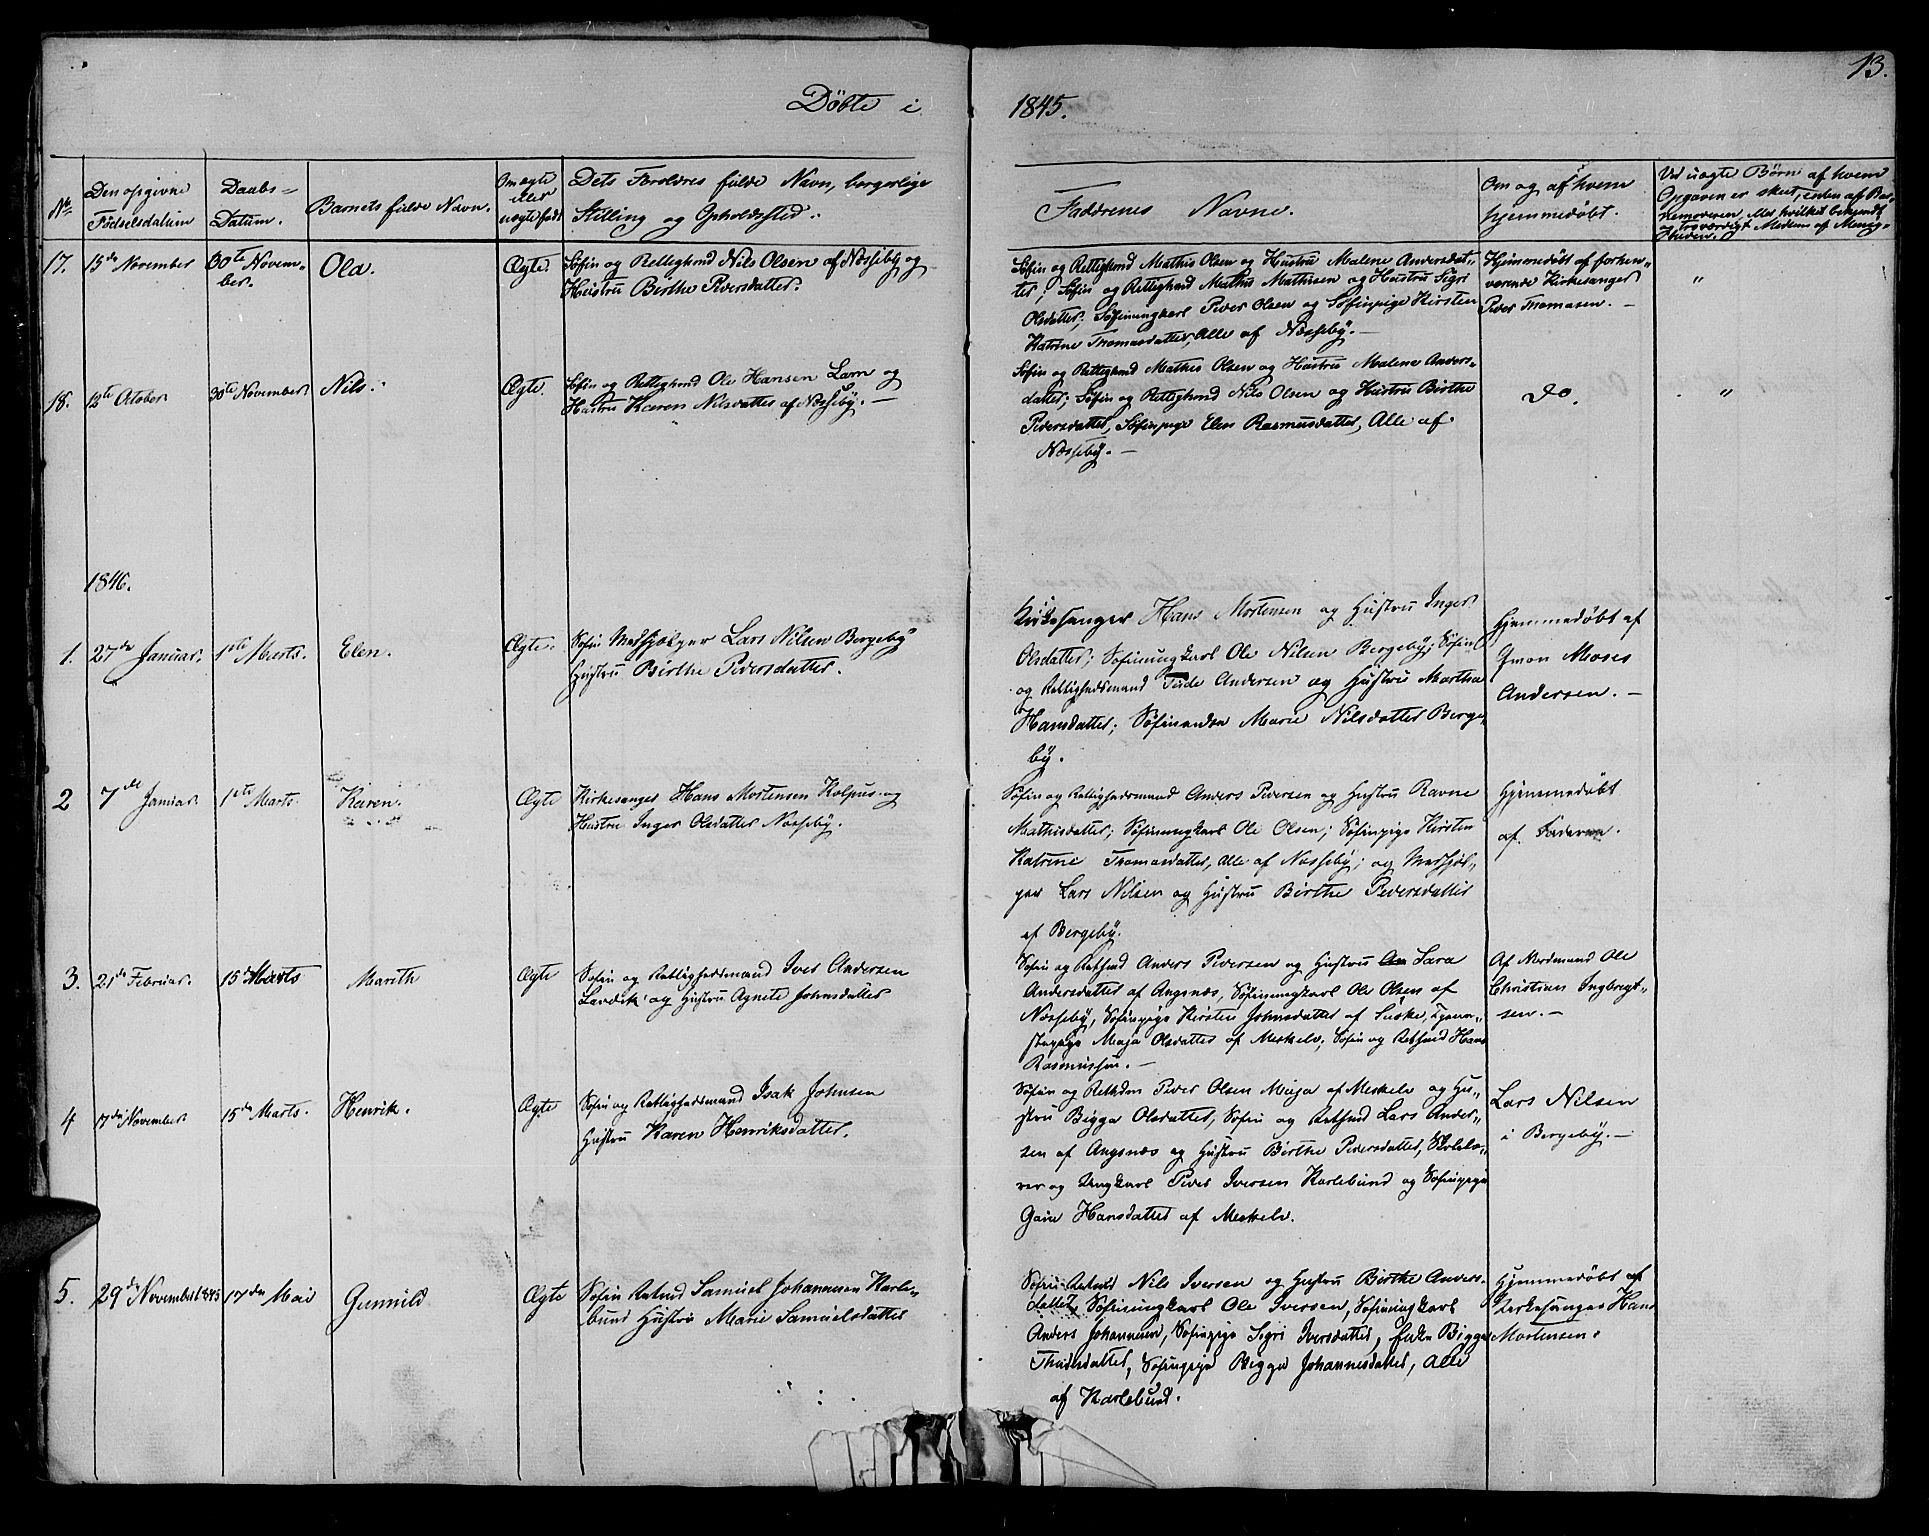 13.
Döbte i 1845.
No.
Den opgivne Fødselsdatum
Daabs-Datum.
Barnets fulde Navn.
Om ægte eller uægte født
Dets Forældres fulde Navn, borgerlige Stilling og Opholdssted.
Faddrenes Navne.
Om og af hvem hjemmedøbt.
Ved uægte Børn af hvem
Opgaven er skeet, enten af Bar-
nemoderen, eller hvilket bekjendt
og troværdigt Medlem af Menig-
heden.
17.
15de November
30te Novem-
ber.
Ola.
Ægte.
Søfin og Rettighmd Nils Olsen af Næsseby og
Hustru Birthe Pedersdatter.
Søfin og Rettighmd Mathis Olsen og Hustru Malene Andersdat-
ter; Søfin og Rettighmd Mathis Mathisen og Hustru Sigri
Olsdatter; Søfinungkarl Peder Olsen og Søfinpige Kirsten
Katrine Thomasdatter, Alle af Næsseby.-
Hjemmedöbt af forhen-
værende Kirkesanger
Peder Thomasen.-
"
18.
12te Octobr
30te November
Nils.
Ægte.
Søfin og Rettighmd Ole Hansen Lam og
Hustru Karen Nilsdatter af Næsseby.-
Søfin og Rettighmd Mathis Olsen og Hustru Malene Anders-
datter; Søfin og Rettighmd Nils Olsen og Hustru Birthe
Pedersdatter, Søfinpige Elen Rasmusdatter, Alle af
Næsseby.-
Do.
"
1846.
1.
27de Januar.
1ste Marts.
Elen.
Ægte.
Søfin Medhjælper Lars Nilsen Bergeby
Hustru Birthe Pedersdatter.
Kirkesanger Hans Mortensen og Hustru Inger
Olsdatter; Søfinungkarl Ole Nilsen Bergeby; Søfin
og Rettighedsmand Tude Andersen og Hustru Martha
Hansdatter; Søfinenke Marie Nilsdatter Berge
by.
Hjemmedøbt af
Gmon Moses
Andersen.-
2
7de Januar.
1ste Marts.
Karen.
Ægte
Kirkesanger Hans Mortensen Kolpus og
Hustru Inger Olsdatter Næsseby.
Søfin og Rettighedsmand Anders Pedersen og Hustru Ravne
Mathisdatter; Søfinungkarl Ole Olsen; Søfinpige Kirsten
Katrine Thomasdatter, Alle af Næsseby; og Medhjæl-
per Lars Nilsen og Hustru Birthe Pedersdatter
af Bergeby.
Hjemmedøbt
af Faderen.
3.
21de Februar.
15de Marts
Mareth
Ægte
Søfin og Rettighedsmand Iver Andersen
Larvik og Hustru Agnete Johnsdatter
Søfin og Rethmd Anders Pedersen og Hustru An Sara
Andersdatter af Angsnæs, Søfinungkarl Ole Olsen af
Næsseby, Søfinpige Kirsten Johnsdatter af Suske, Tjene-
stepige Maja Olsdatter af Meskelv; Søfin og Rethmd Hans
Rasmussen.-
Af Nordmand Ole
Christian Ingbregt-
sen.-
4
17de November
15de Marts.
Henrik.
Ægte
Søfin og Rettighedsmand Isak Johnsen
Hustru Karen Henriksdatter.
Søfin og Rethdm Peder Olsen Muja af Meskelv og Hu-
stru Bigga Olsdatter, Søfin og Rethmd Lars Ander-
sen af Angsnæs og Hustru Birthe Pedersdatter, Skolelæ-
rer og Ungkarl Peder Iversen Karlebund og Søfinpige
Garu Hansdatter af Meskelv.
Lars Nilsen
i Bergeby.-
5.
29de November 1845
17de Mai
Gunnild
Ægte
Søfin Retmd Samuel Johannesen Karle-
bund Hustru Marie Samuelsdatter
Søfin Retmd Nils Iversen og Hustru Birthe Anders-
datter, Søfinungkarl Ole Iversen, Søfinungkarl
Anders Johannesen, Søfinpige Sigri Iversdatter, Enke Bigga
Thudesdatter, Søfinpige Bigga Johannesdatter, Alle
af Karlebund.
Hjemmedøbt af
Kirkesanger Hans
Mortensen.